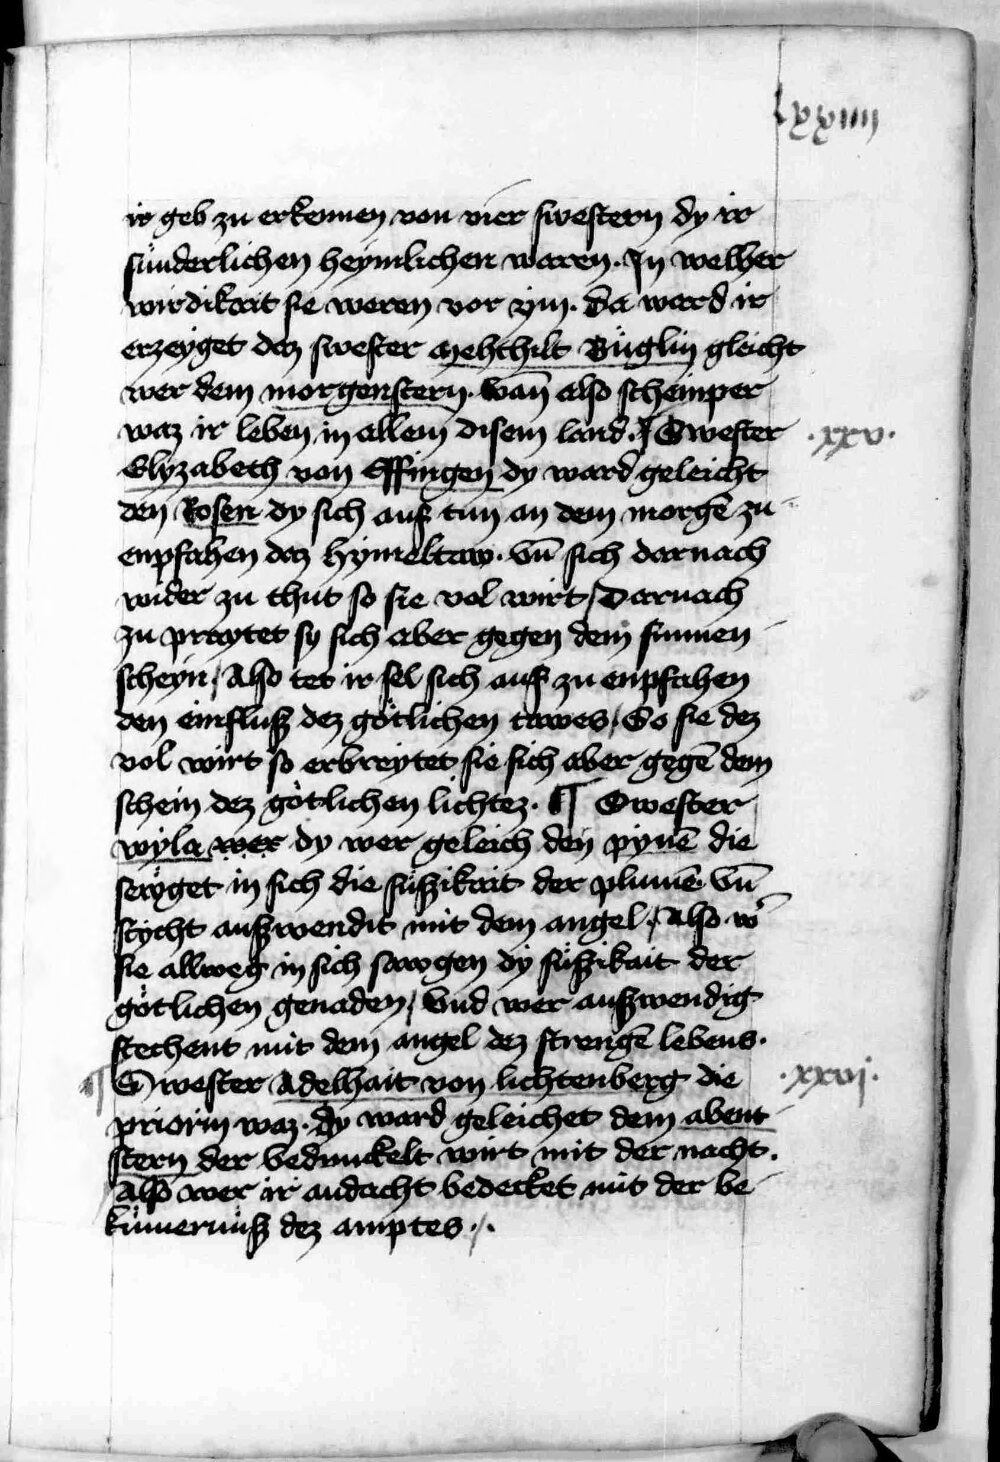 lxxiiii
ir geb zu erkennen von vier swestern dy ir
sünderlichen heymlichen waren. In welher
wirdikait sie weren vor ym. da ward ir
erzeyget daz swester Mehthilt Büglin gleicht
wer dem morgenstern. wañ also schemper
waz ir leben in allem disem land. ¶ Swester .xxv.
Elyzabeth von Effingen dy ward geleicht
den Rosen dy sich auf tun an dem morgē zu
enpfahen daz hymeltaw. vn̄ sich darnach
wider zu thut so sie vol wirt / Darnach
zu praytet sy sich aber gegen dem sunnen
scheyn / Also tet ir sel sich auf zu enpfahen
den einfluß dez götlichen tawes / So sie dez
vol wirt so erbreytet sie sich aber gegē dem
schein dez götlichen lichtez. ¶ Swester
wyla wer dy wer geleich den pynē die
seyget in sich die süßikait der plumē. vn̄
stycht außwendit mit dem angel. / Also w̓
sie allweg in sich sawgen dy süßikait der
götlichen genaden / Vnd wer außwendig
stechent mit dem angel dez strengē lebens.
¶ Swester Adelhait von lichtenberg die .xxvi.
priorin waz. dy ward geleichet dem abent
stern der bedunckelt wirt mit der nacht.
Also wer ir andacht bedecket mit der be
kümernüß dez amptes ./.